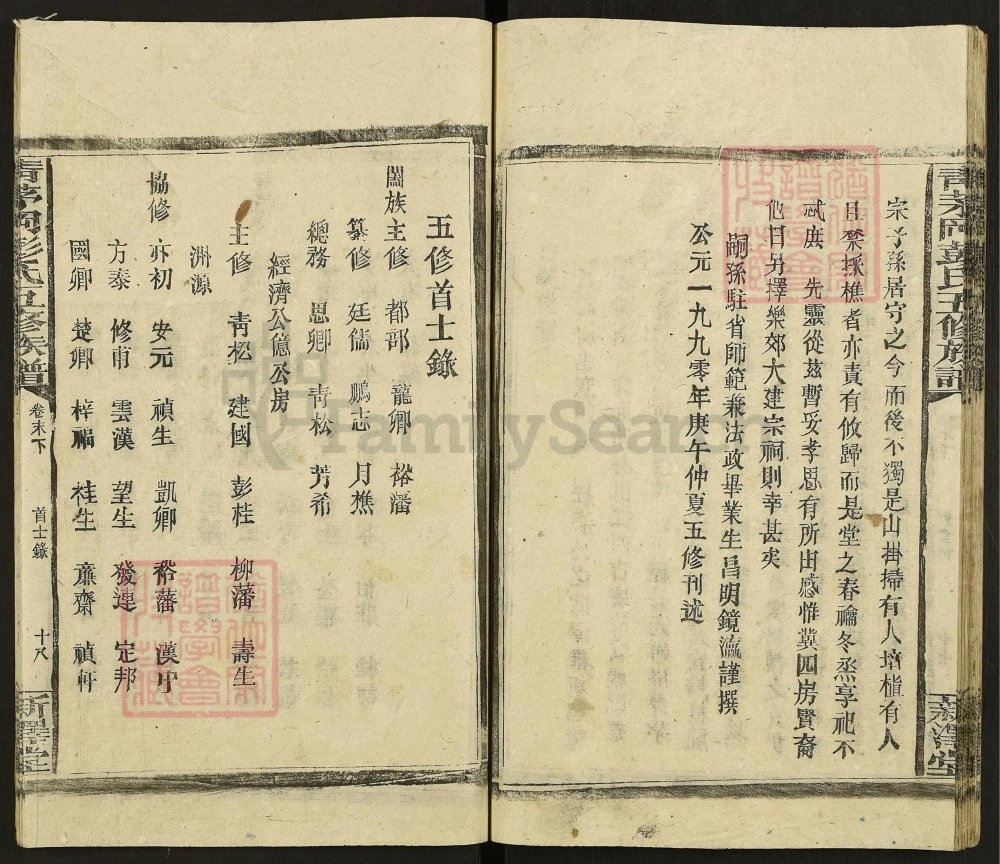 宗子孫居守之今而後不獨是山掛掃有人培植有人
且禁採樵者亦責有攸歸而是堂之春禴冬烝享祀不
忒庶 先靈從茲暫妥孝思有所由感惟冀四房賢裔
他日另擇樂郊大建宗祠則幸甚矣
嗣孫駐省師範兼法政畢業生昌明鏡瀛謹撰
公元一九九零年庚午仲夏五修刊述
五修首士錄
闔族主修 都部 龍卿 裕潘
纂修 廷儒 鵬志 月樵
總務 思卿 青松 芳希
經濟公億公房
主修 靑松 建國 彭桂 柳藩 壽生
洲源
協修 亦初 安元 禎生 凱卿 裕藩 漢丹
方泰 修甫 雲漢 望生 發達 定邦
國卿 楚卿 梓福 桂生 亷齋 禎軒
彭氏五修族譜
卷末下
首士錄
十八
新澤堂
FamilySearch